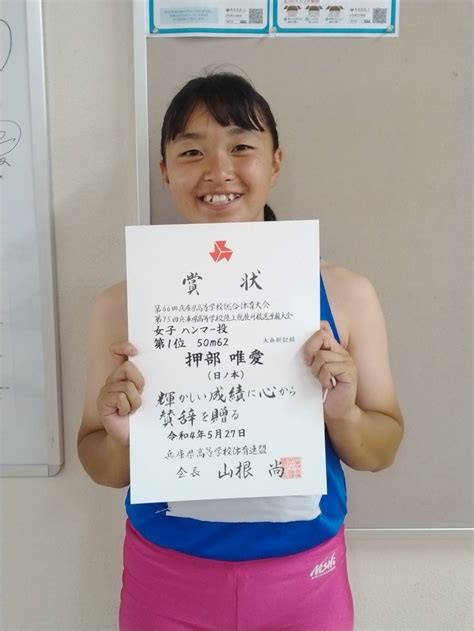 賞状
第66回兵庫県高等学校総合体育大会
第75回兵庫県高等学校陸上競技対校選手権大会
女子 ハンマー投
第1位 50m62 大会新記録
押部 唯愛
(日ノ本)
輝かしい成績に心から
賛辞を贈る
令和4年5月27日
兵庫県高等学校体育連盟
会長 山根 尚